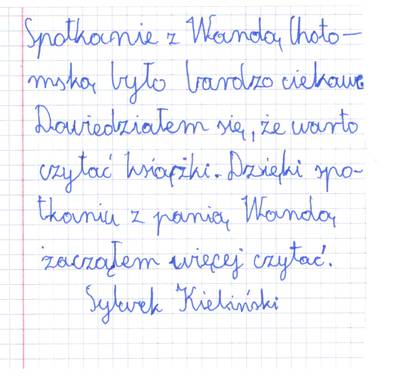 Spotkanie z Wandą Choto-
mską było bardzo ciekawe
Dowiedziałem się, że warto
czytać książki. Dzięki spo-
tkaniu z panią Wandą
zacząłem więcej czytać.
Sylwek Kieliński